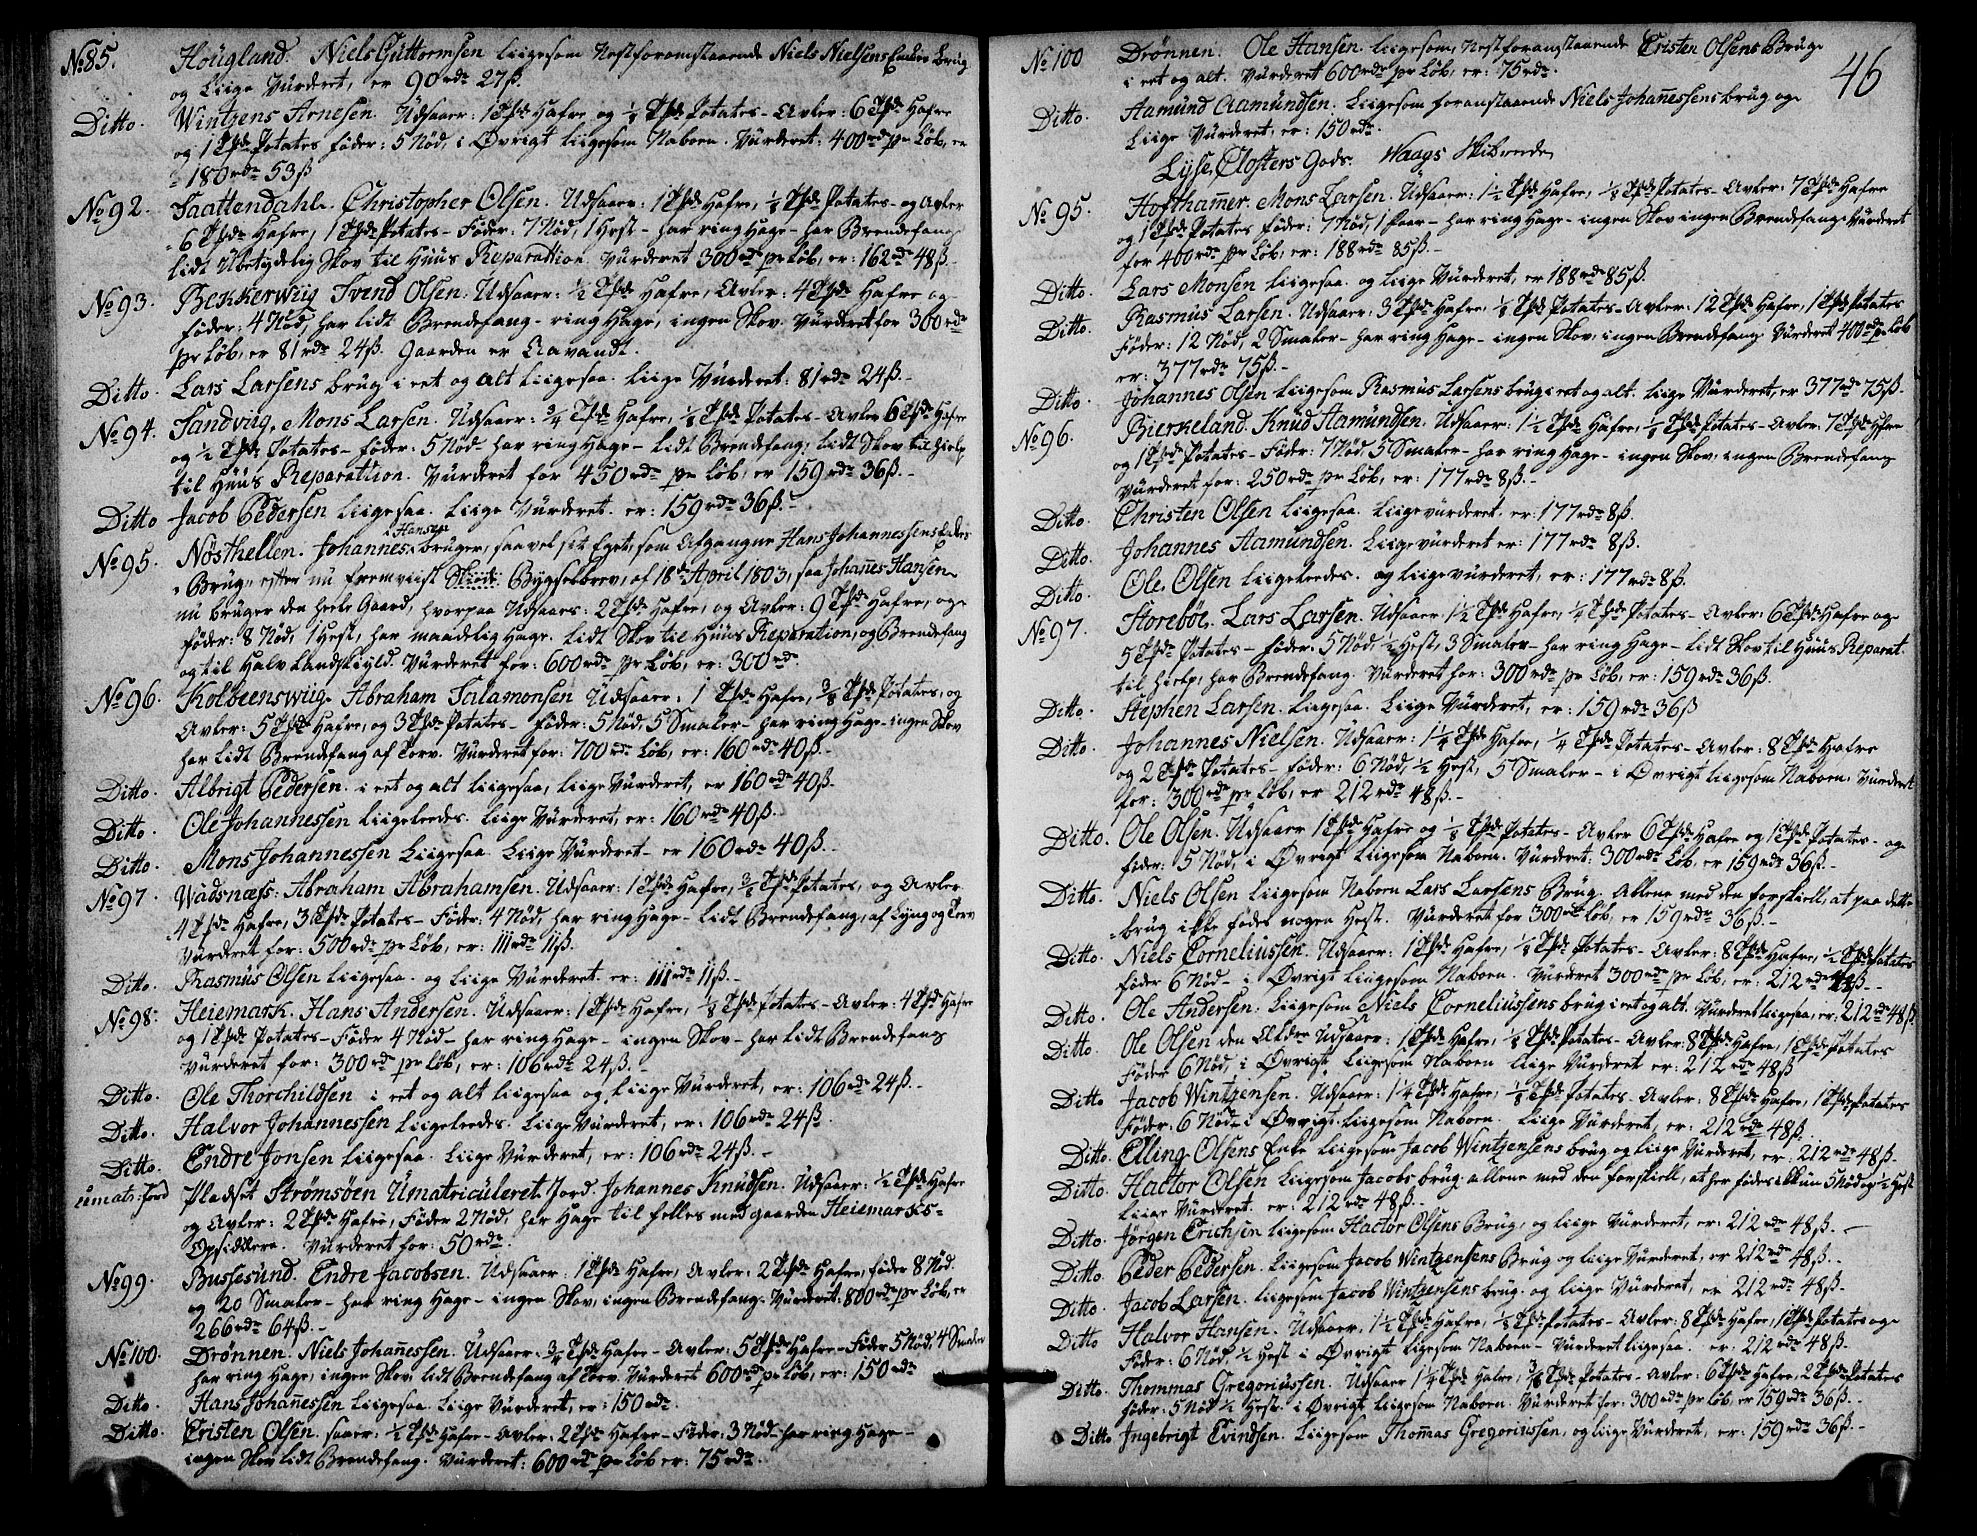 No 85. Hougland. Niels Guttormsen liigesom Nestforanstaaende Niels Nielsens Enkes brug
og Liige Vurderet, er 90 rdr 27 ß.
Ditto. Wintzens Arnesen. Udsaaer: 1 Tde Hafre og 1/8 Tde Potates - Avler: 6 Tdr Hafre
og 1 Tde Potates föder: 5 Nöd, i Øvrigt liigesom Naboen. Vurderet: 400 rdr pr Löb, er
180 rdr 53 ß
No 92. Saattendahle. Christopher Olsen. Udsaaer: 1 Tde Hafre, 1/8 Tde Potates - og Avler
6 Tdr Hafre, 1 Tde Potates - Föder: 7 Nöd, 1 Hest - har ring Hage - har Brendefang
lidt Ubetydelig Skov til Huus Reparation. Vurderet 300 rdr pr Löb, er: 162 rdr 48 ß.
No 93. Bekkerwiig Svend Olsen. Udsaaer: 1/2 Tde Hafre, Avler: 4 Tdr Hafre og
föder: 4 Nöd, har lidt Brendefang - ring Hage, ingen Skov. Vurderet for 300 rdr
pr Löb, er 81 rdr 24 ß. Gaarden er Aavandt.
Ditto. Lars Larsens brug i eet og alt liigesaa. Liige Vurderet: 81 rdr 24 ß.
No 94. Sandvig. Mons Larsen. Udsaaer: 3/4 Tde Hafre, 1/8 Tde Potates - Avler 6 Tdr Hafre
og 1/2 Tde Potates - föder: 5 Nöd - har ring Hage - lidt Brendefang, lidt Skov til hielp
til Huus Reparation. Vurderet for 450 rdr pr Löb, er 159 rdr 36 ß.
Ditto Jacob Pedersen liigesaa. Liige Vurderet. er: 159 rdr 36 ß.
Hansen
No 95. Nösthellen. Johannes bruger, saavel sit Eget, som Afgangne Hans Johannessens Enkes
Brug, efter nu fremviist Skiöde Bygselbrev, af 18de April 1803, saa Johannes Hansen
nu bruger den heele Gaard, hvorpaa Udsaaes: 2 Tdr Hafre, og Avler: 9 Tdr Hafre, og
föder: 8 Nöd, 1 Hest, har maadelig Hage. lidt Skov til Huus Reparation, og Brendefang
og til Halv Landskyld. Vurderet for: 600 rdr pr Löb, er: 300 rdr
No 96. Kolbeenswiig. Abraham Salamonsen Udsaaer: 1 Tde Hafre, 3/8 Tde Potates, og
Avler: 5 Tdr Hafre, og 3 Tdr Potates - föder: 5 Nöd, 5 Smaler - har ring Hage - ingen Skov
har lidt Brendefang af Torv. Vurderet for: 700 rdr Löb, er: 160 rdr 40 ß.
Ditto. Albrigt Pedersen i eet og alt liigesaa, liige Vurderet, er 160 rdr 40 ß.
Ditto. Ole Johannessen liigeleedes. liige Vurderet, er: 160 rdr 40 ß.
Ditto. Mons Johannessen Liigesaa. Liige Vurderet - er 160 rdr 40 ß.
No 97. Wadsnæss: Abraham Abrahamsen. Udsaaer: 1 Tde Hafre, 3/8 Tde Potates, og Avler
4 Tdr Hafre, 3 Tdr Potates - Föder: 4 Nöd, har ring Hage - lidt Brendefang, af Lyng og Torv
Vurderet for: 500 rdr pr Löb, er: 111 rdr 11 ß.
Ditto. Rasmus Olsen liigesaa. og liige Vurderet. er: 111 rdr 11 ß.
No 98. Heiemark. Hans Andersen. Udsaaer: 1 Tde Hafre, 1/8 Tde Potates - Avler: 4 Tdr Hafre
og 1 Tde Potates - Föder 4 Nöd - har ring Hage - ingen Skov - har lidt Brendefang
Vurderet for: 300 rdr pr Löb, er: 106 rdr 24 ß.
Ditto. Ole Thorchildsen i eet og alt liigesaa og liige Vurderet, er: 106 rdr 24 ß.
Ditto. Halvor Johannessen liigeleedes. liige Vurderet, er: 106 rdr 24 ß
Ditto. Endre Jonsen liigesaa. liige Vurderet, er: 106 rdr 24 ß.
umatr: Jord Pladset Strömsöen Umatriculeret Jord. Johannes Knudsen. Udsaaer: 1/2 Tde Hafre
og Avler: 2 Tdr Hafre, Föder 2 Nöd, har Hage til felles med gaarden Heiemarks
Opsiddere. Vurderet for: 50 rdr.
No 99. Bussesund. Endre Jacobsen. Udsaaer: 1 Tde Hafre, Avler: 2 Tdr Hafre, föder 8 Nöd.
og 20 Smaler - har ring Hage - ingen Skov, ingen Brendefang. Vurderet: 800 rdr pr Löb, er
266 rdr 64 ß.
No 100. Drönnen. Niels Johannessen. Udsaaer: 3/4 Tde Hafre - Avler: 5 Tdr Hafre - Föder 5 Nöd, 4 Smaler
har ring Hage, ingen Skov lidt Brendefang af Torv. Vurderet 600 rdr pr Löb, er: 150 rdr
Ditto. Hans Johannessen liigesaa. Liige Vurderet, er: 150 rdr.
Ditto. Cristen Olsen. saaer: 1/2 Tde Hafre - Avler: 2 Tdr Hafre - Föder: 3 Nöd - har ring Hage -
ingen Skov lidt Brendefang. Vurderet: 600 rdr pr Löb er: 75 rdr.
46
No 100 Drönnen. Ole Hansen. liigesom Nestforanstaaende Cristen Olsens Brug
i eet og alt. Vurderet 600 rdr pr Löb, er: 75 rdr.
Ditto. Aamund Aamundsen. Liigesom foranstaaende Niels Johannessens brug og
Liige Vurderet, er: 150 rdr.
Lyse Closters Gods. Waags Skibrede
No 95. Hofthamer. Mons Larsen. Udsaaer: 1 1/2 Tde Hafre, 1/8 Tde Potates - Avler: 7 Tdr Hafre
og 1 Tde Potates föder: 7 Nöd, 1 Faar - har ring Hage - ingen Skov ingen Brendefang. Vurderet
for 400 rdr pr Löb, er: 188 rdr 85 ß.
Ditto. Lars Monsen liigesaa. og liige Vurderet, er 188 rdr 85 ß.
Ditto. Rasmus Larsen. Udsaaer: 3 Tdr Hafre, 1/8 Tde Potates - Avler: 12 Tdr Hafre, 1 Tde Potates
Föder: 12 Nöd, 2 Smaler - har ring Hage - ingen Skov, ingen Brendefang. Vurderet 400 rdr pr Löb
er: 377 rdr 75 ß.
Ditto. Johannes Olsen liigesom Rasmus Larsens brug i eet og alt. liige Vurderet, er 377 rdr 75 ß.
No 96. Bierkeland. Knud Aamundsen. Udsaaer: 1 1/2 Tde Hafre, 1/8 Tde Potates - Avler: 7 Tdr Hafre
og 1 Tde Potates - Föder: 7 Nöd 5 Smaler - har ring Hage - ingen Skov, ingen Brendefang
Vurderet for: 250 rdr pr Löb, er: 177 rdr 8 ß.
Ditto. Christen Olsen liigesaa. Liige vurderet. er: 177 rdr 8 ß.
Ditto. Johannes Aamundsen. Liige vurderet er: 177 rdr 8 ß.
Ditto. Ole Olsen liigeleedes. og liige vurderet, er: 177 rdr 8 ß.
No 97. Storeböe. Lars Larsen. Udsaaer: 1 1/2 Tde Hafre, 1/4 Tde Potates - Avler: 6 Tdr Hafre og
5 Tdr Potates - föder: 5 Nöd, 1/2 Hest, 3 Smaler - har ring Hage - lidt Skov til Huus Reparat.
til hielp, har Brendefang. Vurderet for: 300 rdr pr Löb, er: 159 rdr 36 ß.
Ditto. Stephen Larsen. liigesaa. Liige Vurderet, er: 159 rdr 36 ß
Ditto. Johannes Nielsen. Udsaaer: 1 1/4 Tde Hafre, 1/4 Tde Potates - Avler: 8 Tdr Hafre
og 2 Tdr Potates - föder: 6 Nöd, 1/2 Hest, 5 Smaler - i Øvrigt liigesom Naboen. Vurderet
for: 300 rdr pr Löb, er 212 rdr 48 ß.
Ditto. Ole Olsen. Udsaaer 1 Tde Hafre og 1/8 Tde Potates - Avler 6 Tdr Hafre og 1 Tde Potates - og
föder: 5 Nöd, i Øvrigt liigesom Naboen. Vurderet: 300 rdr Löb, er 159 rdr 36 ß.
Ditto. Niels Olsen liigesom Naboen Lars Larsens Brug. Allene med den forskiell, at paa dette
brug ikke födes nogen Hest. Vurderet for 300 rdr Löb, er 159 rdr 36 ß.
Ditto. Niels Corneliussen. Udsaaer: 1 Tde Hafre, 1/8 Tde Potates - Avler: 8 Tdr Hafre, 1/2 Tde Potates
föder 6 Nöd - i Øvrigt liigesom Naboen. Vurderet 300 rdr pr Löb, er: 212 rdr 48 ß.
Ditto. Ole Andersen. Liigesom Niels Corneliussens brug i eet og alt. Vurderet liigesaa, er: 212 rdr 48 ß.
Ditto. Ole Olsen den Ældre Udsaaer: 1 Tde Hafre, 1/8 Tde Potates - Avler: 8 Tdr Hafre, 1 Tde Potates
Föder 6 Nöd, i Øvrigt liigesom Naboen. liige Vurderet er: 212 rdr 48 ß
Ditto Jacob Wintzensen. Udsaaer: 1 1/4 Tde Hafre, 1/8 Tde Potates - Avler: 8 Tdr Hafre, 1 Tde Potates
Föder: 6 Nöd - i Øvrigt liigesom Naboen. liige Vurderet, er: 212 rdr 48 ß.
Ditto. Elling Olsens Enke liigesom Jacob Wintzensens brug og liige Vurderet, er: 212 rdr 48 ß.
Ditto. Hactor Olsen liigesom Jacobs brug. allene med den forskiell, at her födes ikkun 5 Nöd og 1/2 Hest
liige Vurderet. er: 212 rdr 48 ß.
Ditto. Jörgen Erichsen liigesom Hactor Olsens Brug, og liige Vurderet, er: 212 rdr 48 ß.
Ditto. Peder Pedersen. liigesom Jacob Wintzensens Brug og liige Vurderet, er 212 rdr 48 ß.
Ditto. Jacob Larsen. liigesom Jacob Wintzensens brug. og liige Vurderet, er 212 rdr 48 ß.
Ditto Halvor Hansen. Udsaaer, 1 1/2 Tde Hafre, 1/8 Tde Potates - Avler: 8 Tdr Hafre, 1 Tde Potates og
Föder: 6 Nöd, 1/2 Hest i Øvrigt liigesom Naboen - Vurderet liigesaa. er: 212 rdr 48 ß.
Ditto. Thommas Gregoriussen. Udsaaer 1 1/4 Tde Hafre, 3/8 Tde Potates - Avler: 6 Tdr Hafre, 2 Tdr Potates
föder: 5 Nöd 1/2 Hest. i Øvrigt liigesom Naboen. Vurderet for: 300 rdr pr Löb, er 159 rdr 36 ß.
Ditto. Ingebrigt Evindsen. liigesom Thommas Gregoriussen, og liige Vurderet, er: 159 rdr 36 ß.